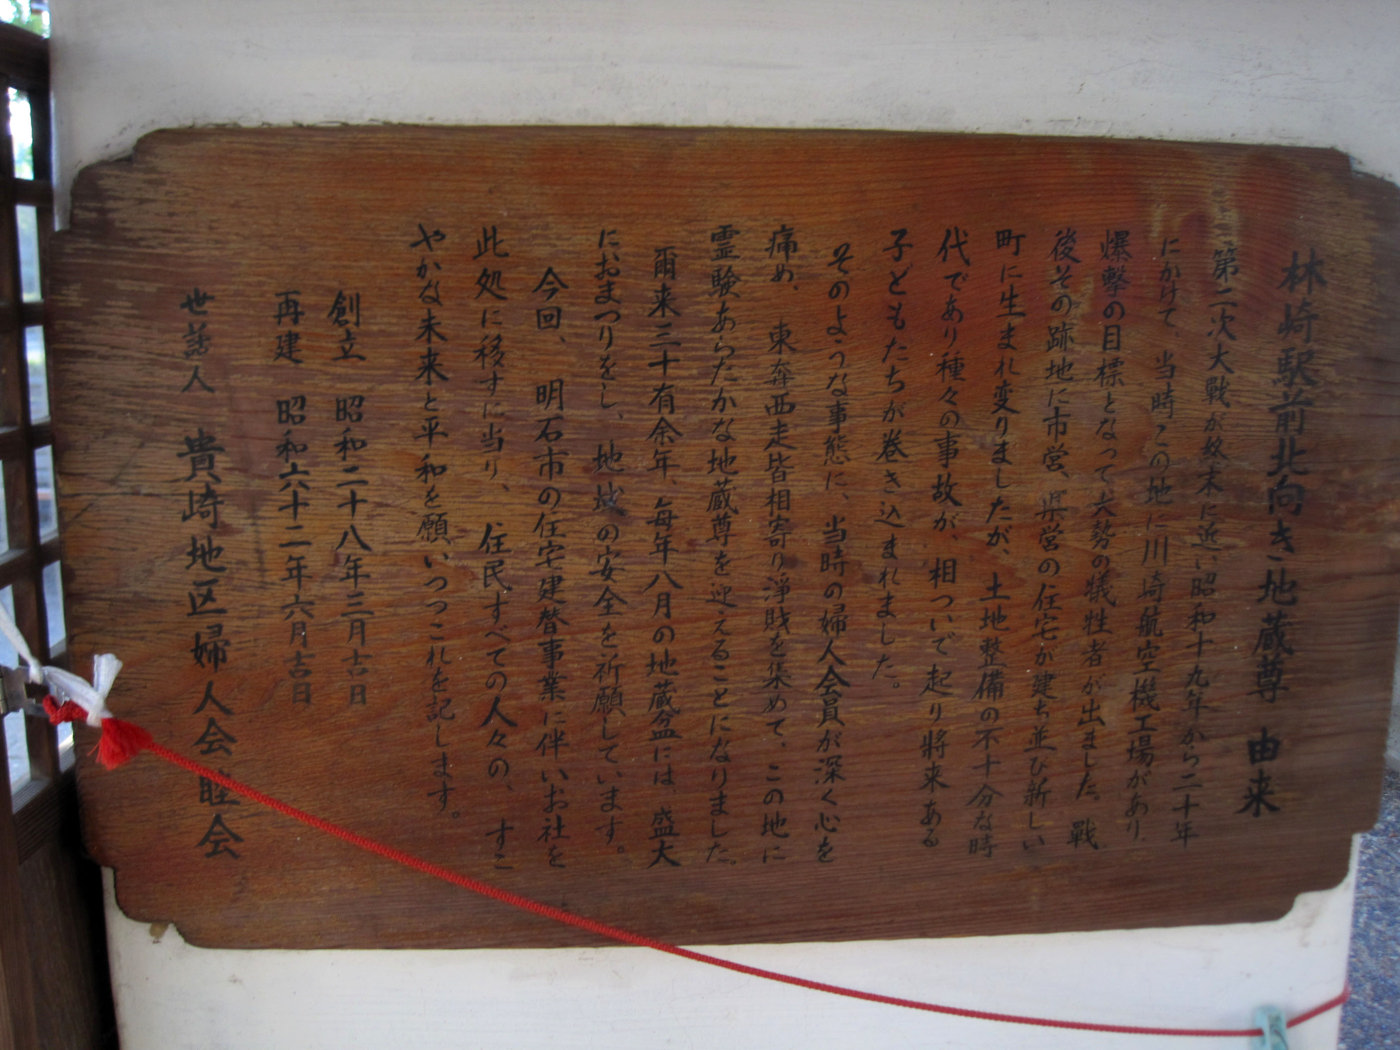 林崎駅前北向き地蔵尊 由来
第二次大戦が終末に近い昭和十九年から二十年
にかけて、当時この地に川崎航空機工場があり、
爆撃の目標となって大勢の犠牲者が出ました。戦
後その跡地に市営、県営の住宅が建ち並び新しい
町に生まれ変りましたが、土地整備の不十分な時
代であり種々の事故が、相ついで起り将来ある
子どもたちが巻き込まれました。
そのような事態に、当時の婦人会員が深く心を
痛め、東奔西走皆相寄り浄賎を集めて、この地に
霊験あらたかな地蔵尊を迎えることになりました。
爾来三十有余年、毎年八月の地蔵盆には、盛大
におまつりをし、地域の安全を祈願しています。
今回、明石市の住宅建替事業に伴いお社を
此処に移すに当り、住民すべての人々の、すこ
やかな未来と平和を願いつつこれを記します。
創立 昭和二十八年三月吉日
再建 昭和六十二年六月吉日
世話人 貴崎地区婦人会睦会